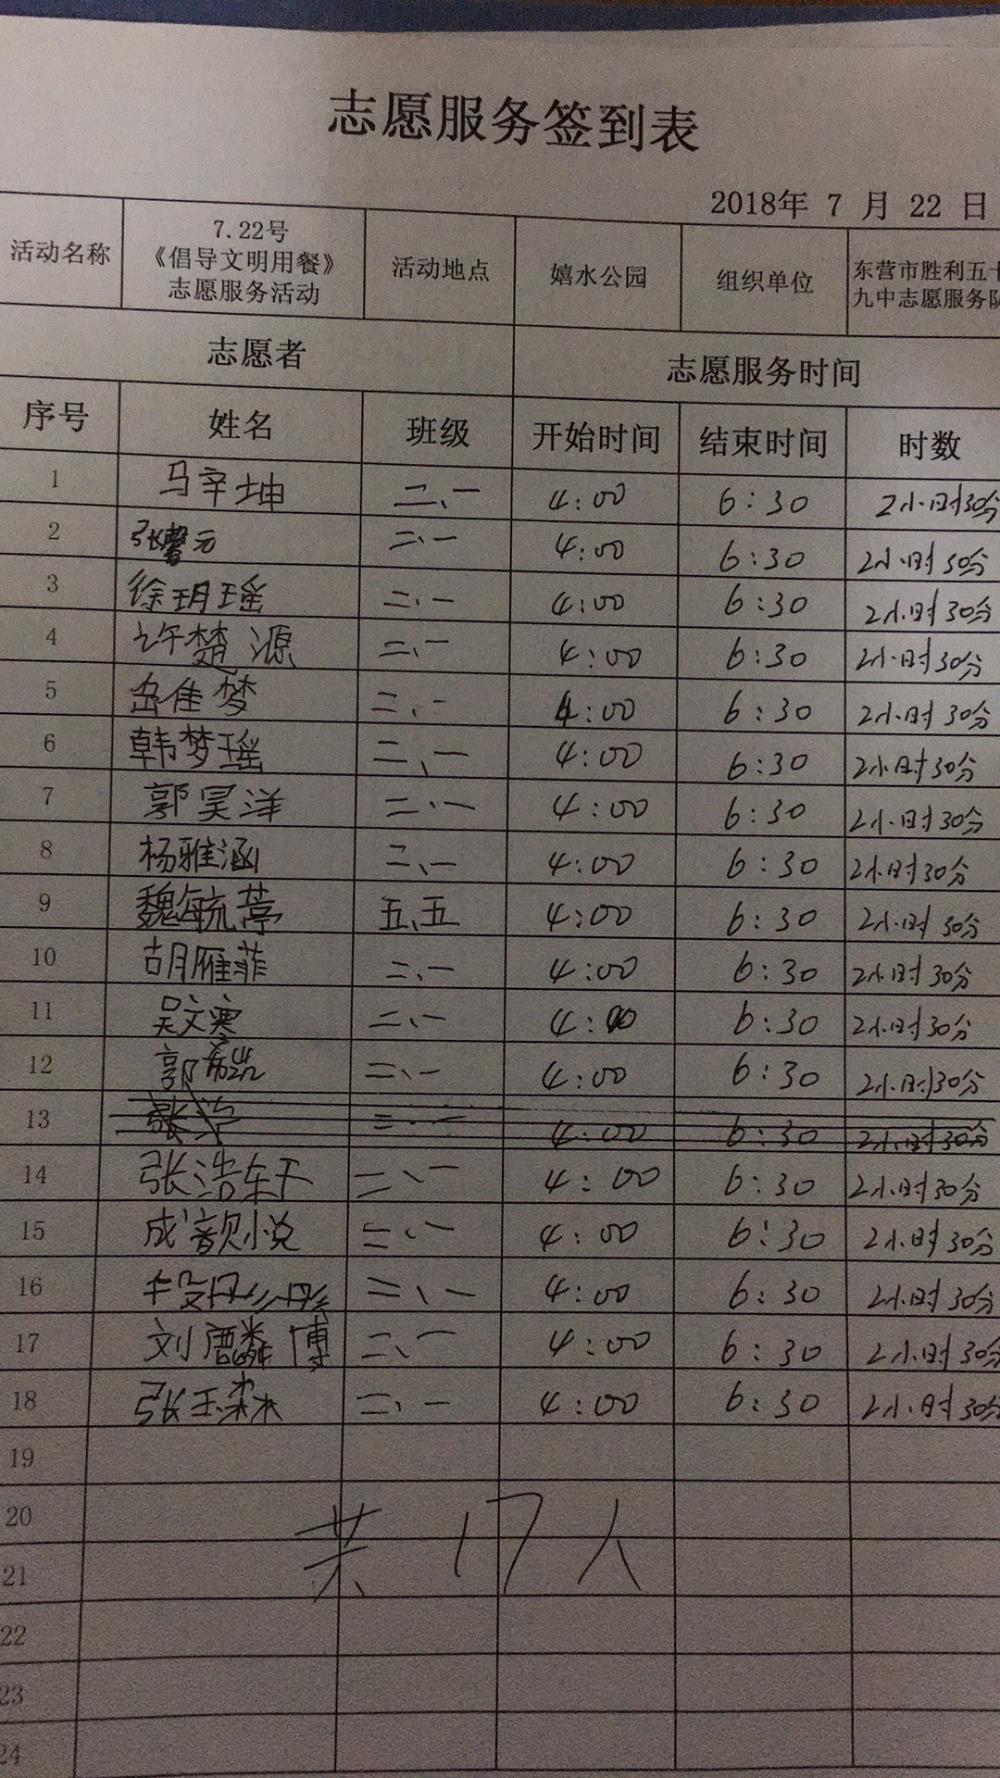 志愿服务签到表
2018年 7 月 22 日
活动名称 7.22号《倡导文明用餐》志愿服务活动 活动地点 嬉水公园 组织单位 东营市胜利五十九中志愿服务队
志愿者 志愿服务时间
序号 姓名 班级 开始时间 结束时间 时数
1 马辛坤 二、一 4:00 6:30 2小时30分
2 张馨元 二、一 4:00 6:30 2小时30分
3 徐玥瑶 二、一 4:00 6:30 2小时30分
4 许楚源 二、一 4:00 6:30 2小时30分
5 岳佳梦 二、一 4:00 6:30 2小时30分
6 韩梦瑶 二、一 4:00 6:30 2小时30分
7 郭昊洋 二、一 4:00 6:30 2小时30分
8 杨雅涵 二、一 4:00 6:30 2小时30分
9 魏毓葶 五、五 4:00 6:30 2小时30分
10 胡雁菲 二、一 4:00 6:30 2小时30分
11 吴文寒 二、一 4:00 6:30 2小时30分
12 郭 二、一 4:00 6:30 2小时30分
13 张 二、一 4:00 6:30 2小时30分
14 张浩 二、一 4:00 6:30 2小时30分
15 成 二、一 4:00 6:30 2小时30分
16 二、一 4:00 6:30 2小时30分
17 刘麟博 二、一 4:00 6:30 2小时30分
18 张玉森 二、一 4:00 6:30 2小时30分
19
20
共 17人
21
22
23
24